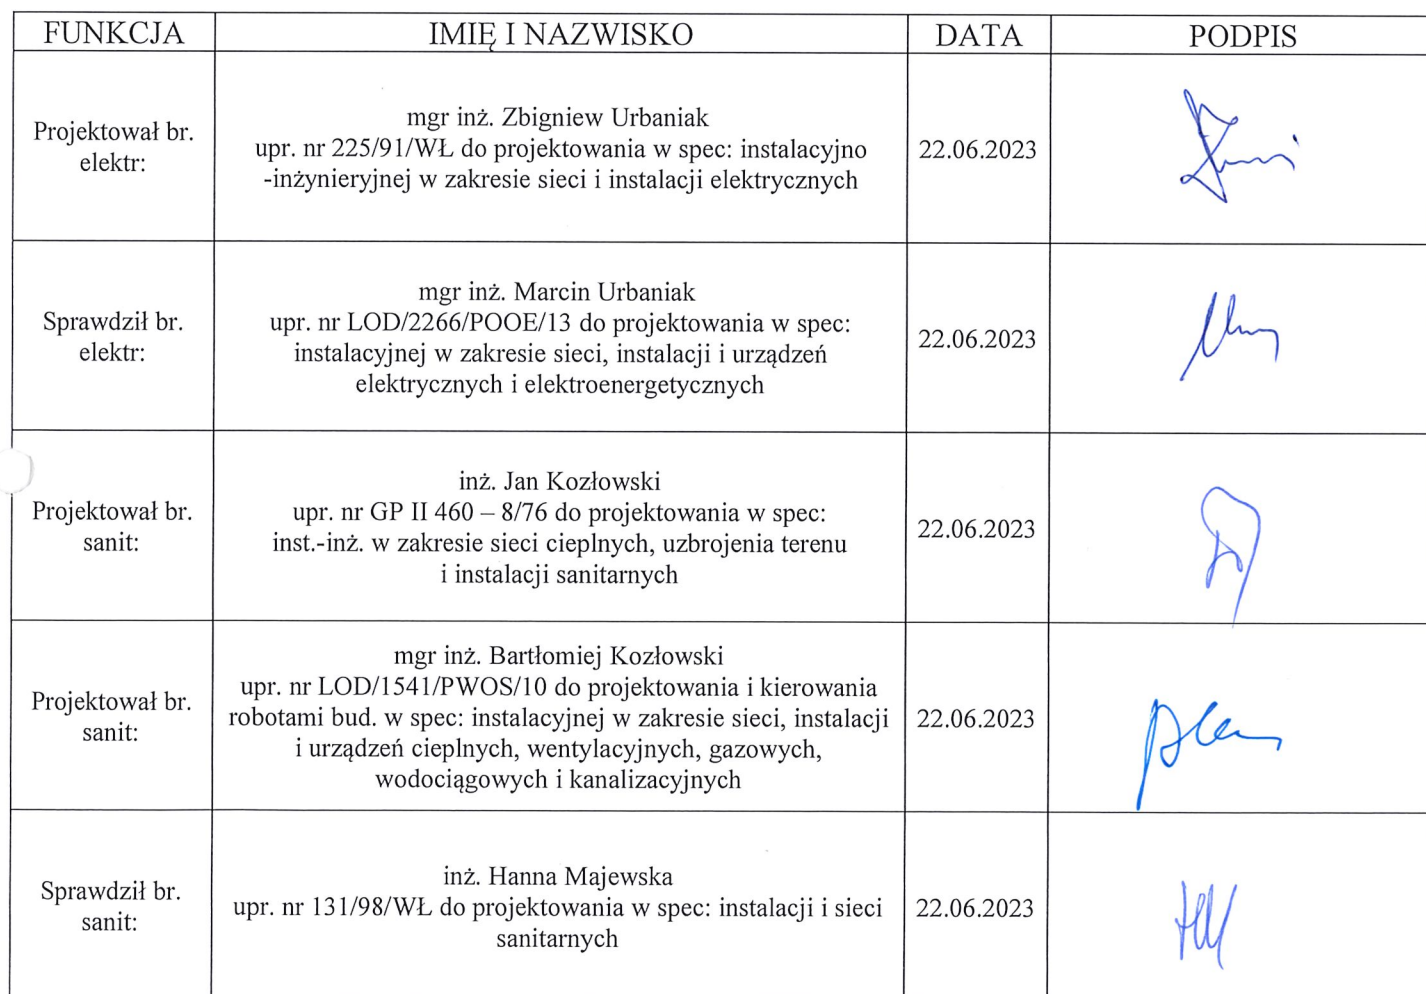 FUNKCJA IMIĘ I NAZWISKO DATA PODPIS
Projektował br.
elektr:
mgr inż. Zbigniew Urbaniak
upr. nr 225/91/WŁ do projektowania w spec: instalacyjno
-inżynieryjnej w zakresie sieci i instalacji elektrycznych
22.06.2023
Sprawdził br.
elektr:
mgr inż. Marcin Urbaniak
upr. nr LOD/2266/POOE/13 do projektowania w spec:
instalacyjnej w zakresie sieci, instalacji i urządzeń
elektrycznych i elektroenergetycznych
22.06.2023
Projektował br.
sanit:
inż. Jan Kozłowski
upr. nr GP II 460 – 8/76 do projektowania w spec:
inst.-inż. w zakresie sieci cieplnych, uzbrojenia terenu
i instalacji sanitarnych
22.06.2023
Projektował br.
sanit:
mgr inż. Bartłomiej Kozłowski
upr. nr LOD/1541/PWOS/10 do projektowania i kierowania
robotami bud. w spec: instalacyjnej w zakresie sieci, instalacji
i urządzeń cieplnych, wentylacyjnych, gazowych,
wodociągowych i kanalizacyjnych
22.06.2023
Sprawdził br.
sanit:
inż. Hanna Majewska
upr. nr 131/98/WŁ do projektowania w spec: instalacji i sieci
sanitarnych
22.06.2023